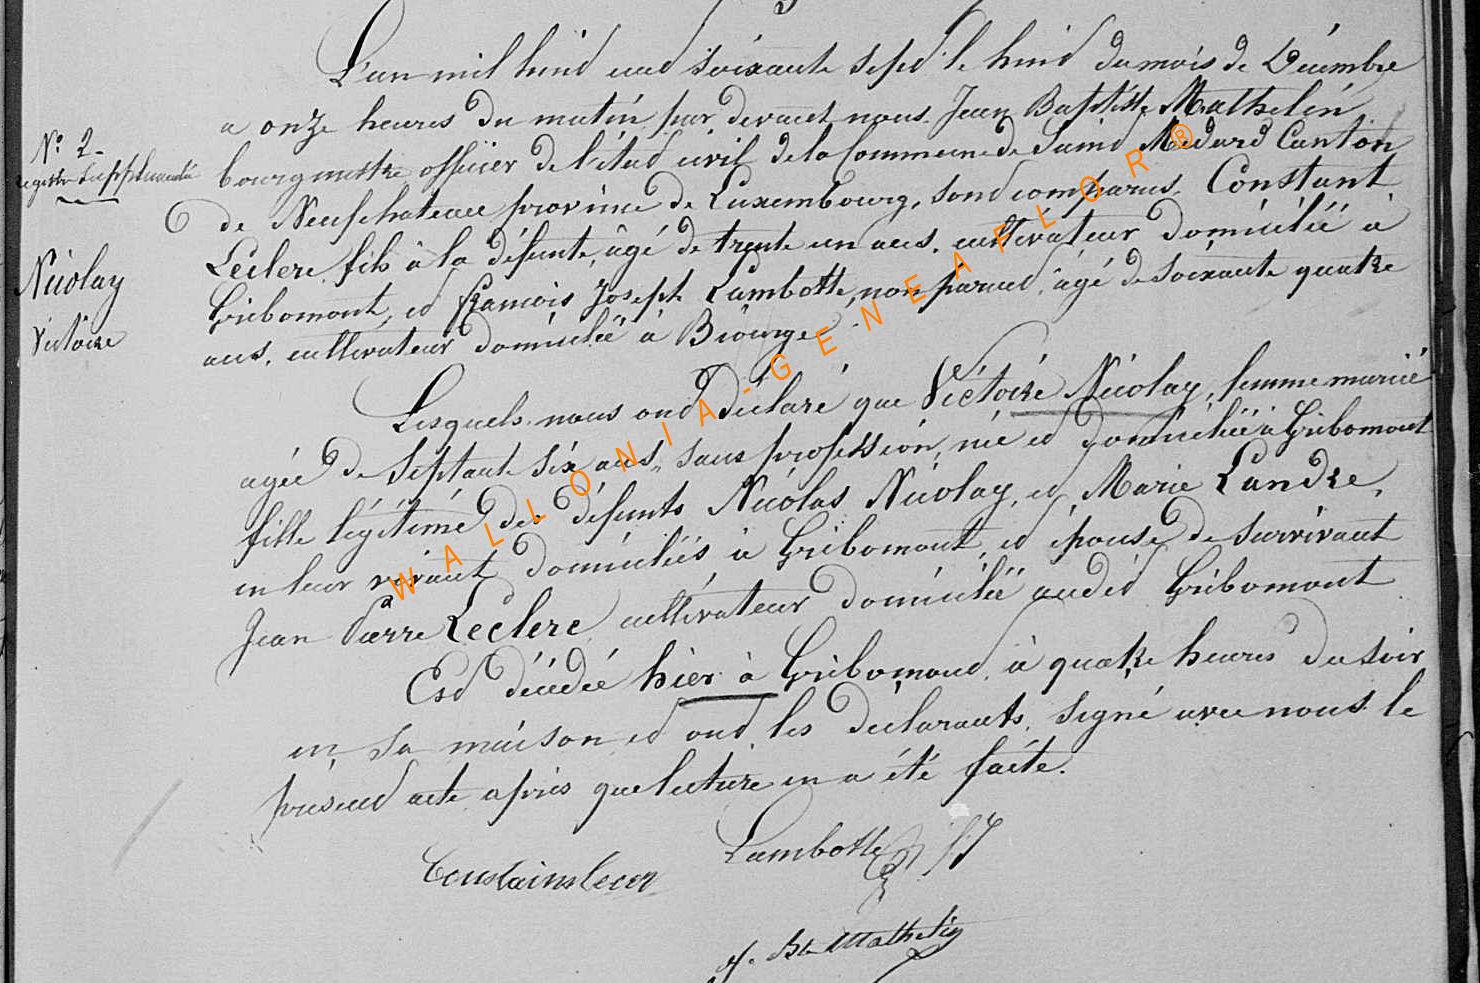 L'an mil huit cent soixante sept le huit du mois de Décembre
a onze heures du matin par devant nous Jean Baptiste Mathelin
N° 2
registre supplémentaire
bourgmestre officier de l'état civil de la Commune de Saint Médard Canton
de Neufchateau province de Luxembourg, sont comparus, Constant
Nicolay
Victoire
Leclere fils à la défunte, âgé de trente un ans, cultivateur domicilié à
Gribomont, et françois Joseph Lambotte, non parent, âgé de soixante quatre
ans, cultivateur domicilié à Biourge
Lesquels nous ont déclaré que Victoire Nicolay, femme mariée
agée de septante six ans, sans profession, née et domiciliée à Gribomont
fille légitime des défunts Nicolas Nicolay, et Marie Landre,
en leur vivant domiciliés à Gribomont, et épouse de survivant
Jean Pierre Leclere cultivateur domicilié audit Gribomont
Est décédée hier à Gribomont, à quatre heures du soir
en sa maison et ont les déclarants, signé avec nous le
présent acte après que lecture en a été faite.
Lambotte fJ
J. Bte Mathelin
WALLONIA-GENEAFLOR®